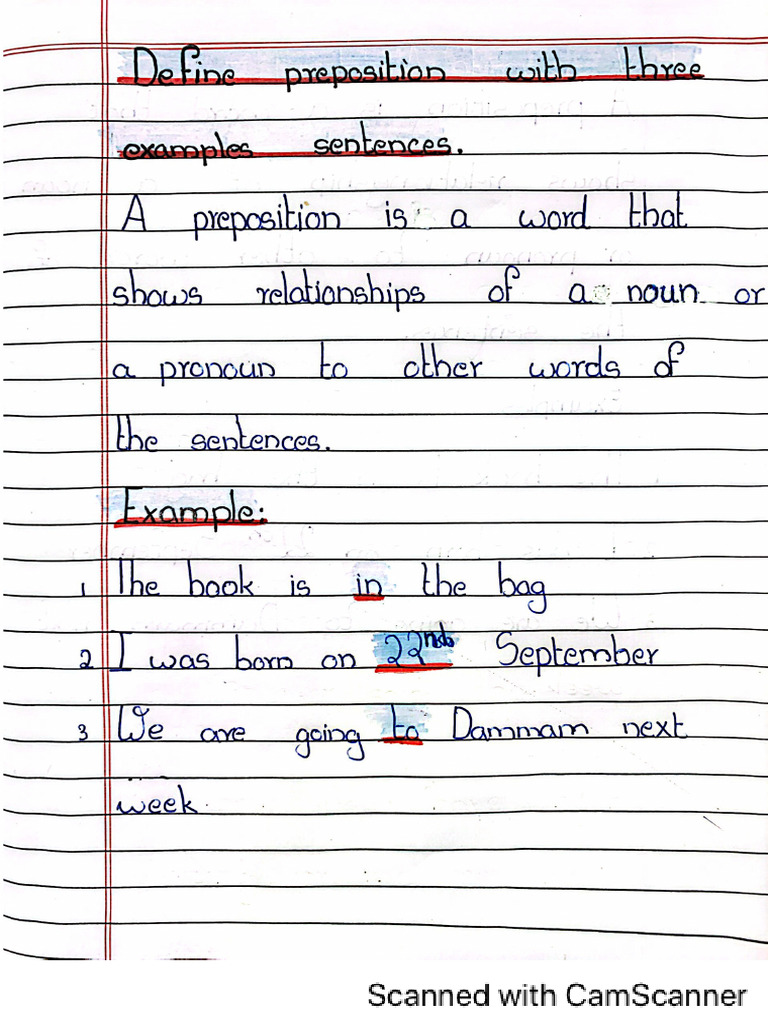 Define preposition with three
examples sentences.
A preposition is a word that
shows relationships of a noun or
a pronoun to other words of
the sentences.
Example:
1 The book is in the bag
2 I was born on 22nd September
3 We are going to Dammam next
week.
Scanned with CamScanner